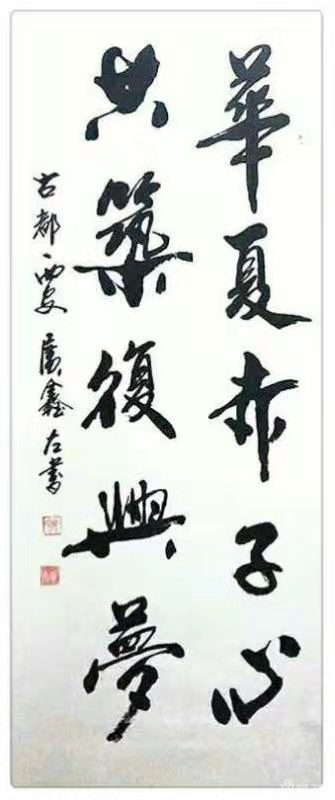 華夏赤子心
共築復興夢
古都西安 廣鑫左書